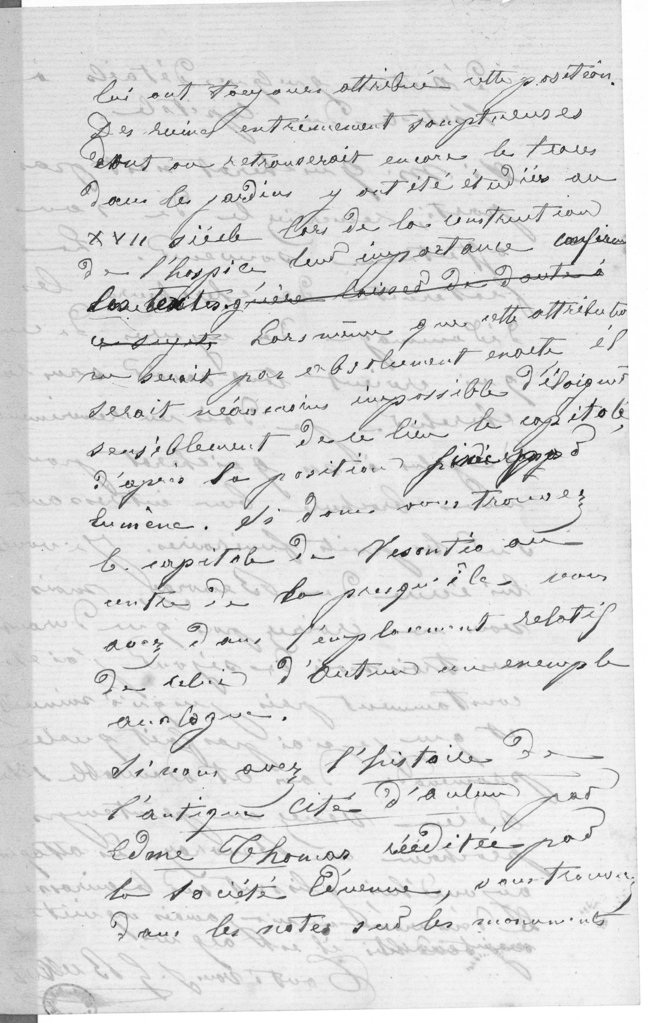 lui ont toujours attribué cette position.
Des ruines extrêmement somptueuses
dont on retrouverait encore la trace
dans les jardins y ont été étudiées au
XVII siècle lors de la construction
de l'hospice leur importance confirme
les textes. guère laisser de doute à
ce sujet. Lors même que cette attributio
ne serait pas absolument exacte il
serait néanmoins impossible d'éloigner
sensiblement de ce lieu le capitole,
d'après la position
lumène. Si donc vous trouvez
le capitole de Vesontio au
centre de la presqu'île, vous
avez dans l'emplacement relatif
de celui d'Autun un exemple
analogue.
Si vous avez l'histoire de
l'antique cité d'autun par
Edme Thomas rééditée par
la société Eduenne, vous trouverez
dans les notes sur les monuments